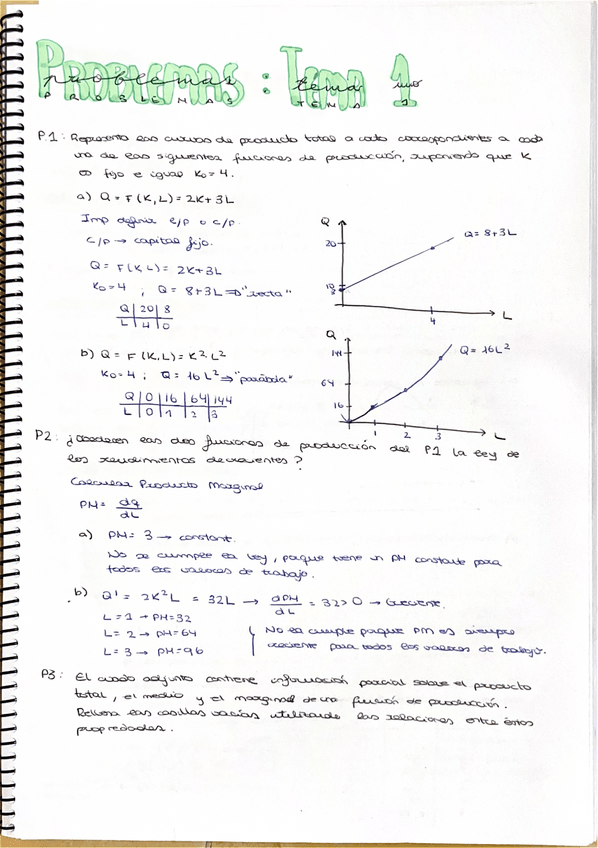 PROBLEMAS : TEMA 1
problemas tema uno
PROBLEMAS TEMA 1
P.1: Representa las curvas de producto total a corto correspondientes a cada
una de las siguientes funciones de producción, suponiendo que K
es fijo e igual K₀ = 4.
a) Q = F(K,L) = 2K + 3L
Imp definir l/p o c/p.
c/p → capital fijo.
Q = F(K,L) = 2K + 3L
K₀ = 4 ; Q = 8 + 3L ⇒ "recta"
Q | 20 | 8
L | 4 | 0
Q
20
10
8
Q = 8 + 3L
4
L
b) Q = F(K,L) = K²L²
K₀ = 4 ; Q = 16L² ⇒ "parábola"
Q | 0 | 16 | 64 | 144
L | 0 | 1 | 2 | 3
Q
144
64
16
Q = 16L²
1 2 3
L
P2: ¿Obedecen las dos funciones de producción del P1 la ley de
los rendimientos decrecientes?
Calcular Producto Marginal
PM = dq/dL
a) PM = 3 → constante.
No se cumple la ley, porque tiene un PM constante para
todos los valores de trabajo.
b) Q' = 2K²L = 32L → dPM/dL = 32 > 0 → Creciente.
L = 1 → PM = 32
L = 2 → PM = 64
L = 3 → PM = 96
No la cumple porque PM es siempre
creciente para todos los valores de trabajo.
P3: El cuadro adjunto contiene información parcial sobre el producto
total, el medio y el marginal de una función de producción.
Rellena las casillas vacías utilizando las relaciones entre estas
propiedades.